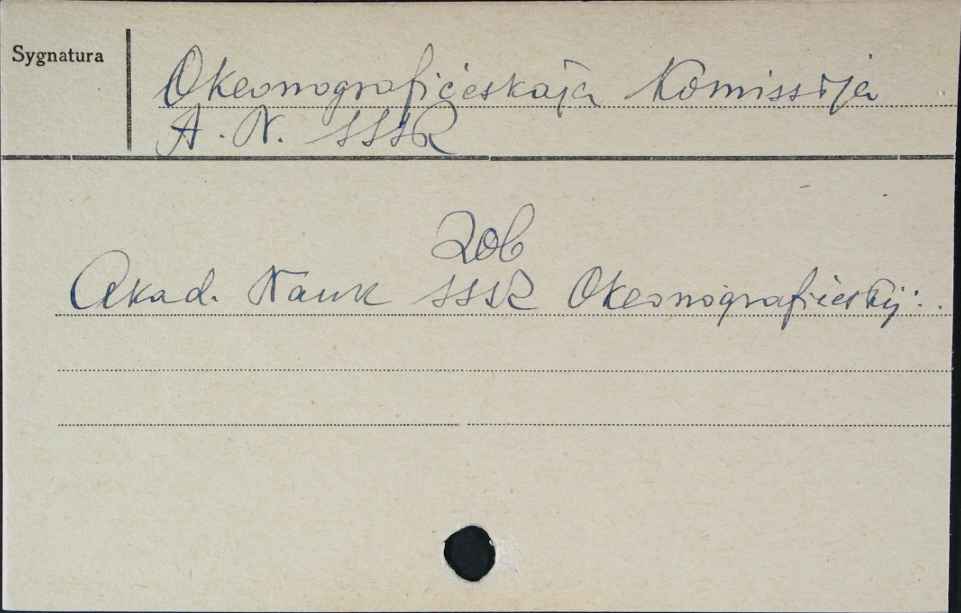 Sygnatura
Okeonografičeskaja Komissija
A. N. SSSR
Zob
Akad. Nauk SSSR Okeonografičeskij...